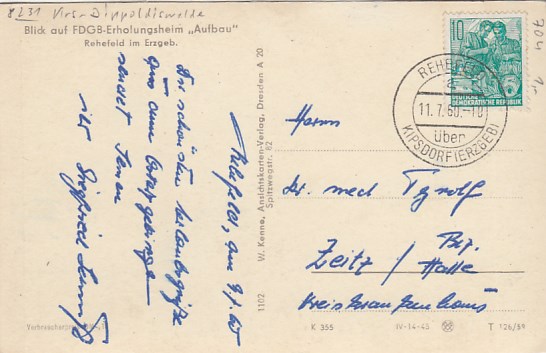 8231 Krs. Dippoldiswalde
Blick auf FDGB-Erholungsheim „Aufbau"
Rehefeld im Erzgeb.
704
10
DEUTSCHE
DEMOKRATISCHE REPUBLIK
REHEFELD
a
11.7.60.-10
über
KIPSDORF (ERZGEB)
Rehefeld, am 9.7.60
Die schönsten Urlaubsgrüße
aus dem Osterzgebirge
sendet Ihnen
Ihr Siegfried
W. Kenne, Ansichtskarten-Verlag, Dresden A 20
Spitzwegstr. 62
1102
Herrn
Dr. med
Zeitz / Bez. Halle
Kreiskrankenhaus
K 355
IV-14-45
T 126/59